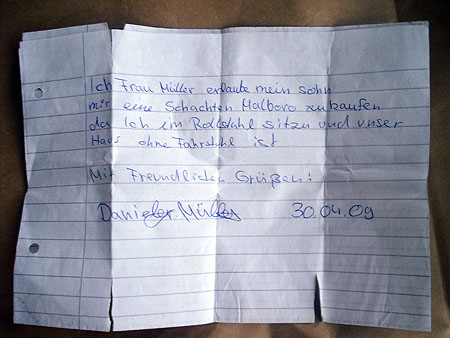 Ich Frau Müller erlaube mein sohn
mir eine Schachten Malboro zu kaufen
da Ich im Rollstuhl sitze und unser
Haus ohne Fahrstuhl ist
Mit Freundlichen Grüßen:
Daniela Müller 30.04.09